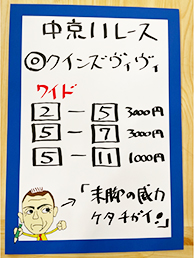 中京11レース
◎クインズヴィヴィ
ワイド
2 ー 5 3000円
5 ー 7 3000円
5 ー 11 1000円
→「末脚の威力
ケタチガイ!」